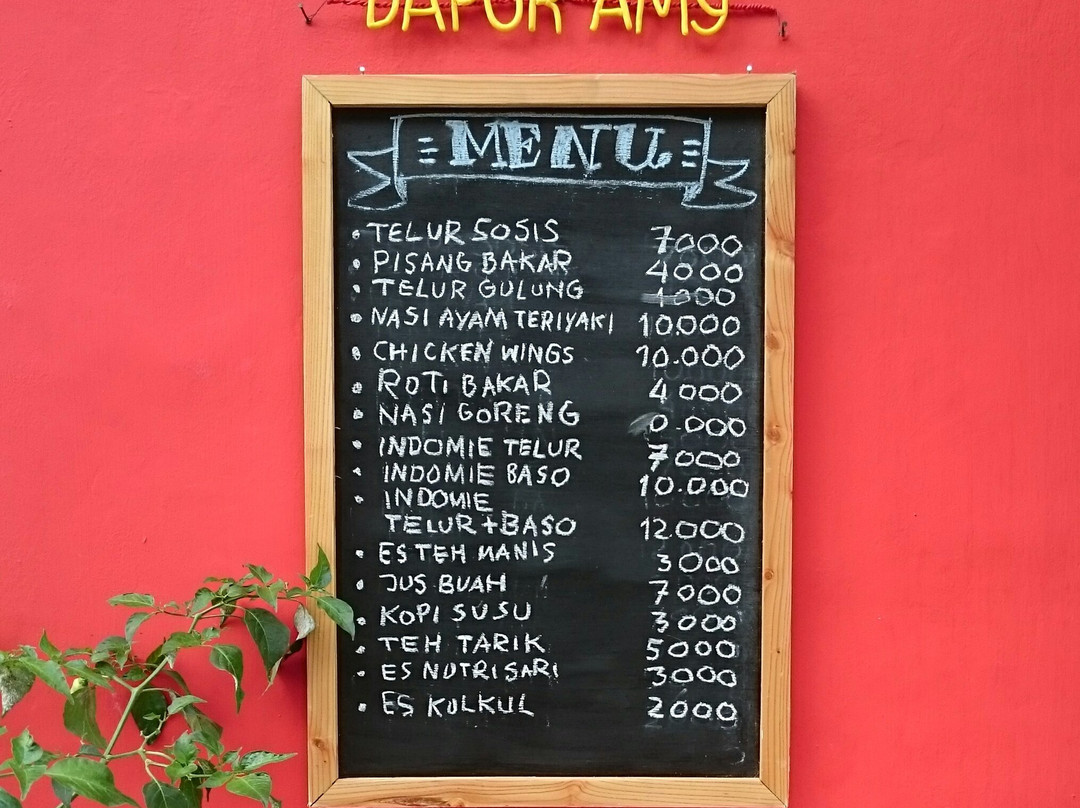 DAPUR AMY
MENU
TELUR SOSIS 7000
PISANG BAKAR 4000
TELUR GULUNG 1000
NASI AYAM TERIYAKI 10.000
CHICKEN WINGS 10.000
ROTI BAKAR 4000
NASI GORENG 0.000
INDOMIE TELUR 7000
INDOMIE BASO 10.000
INDOMIE
TELUR+BASO 12.000
ES TEH MANIS 3000
JUS BUAH 7000
KOPI SUSU 3000
TEH TARIK 5000
ES NUTRISARI 3000
ES KULKUL 2000